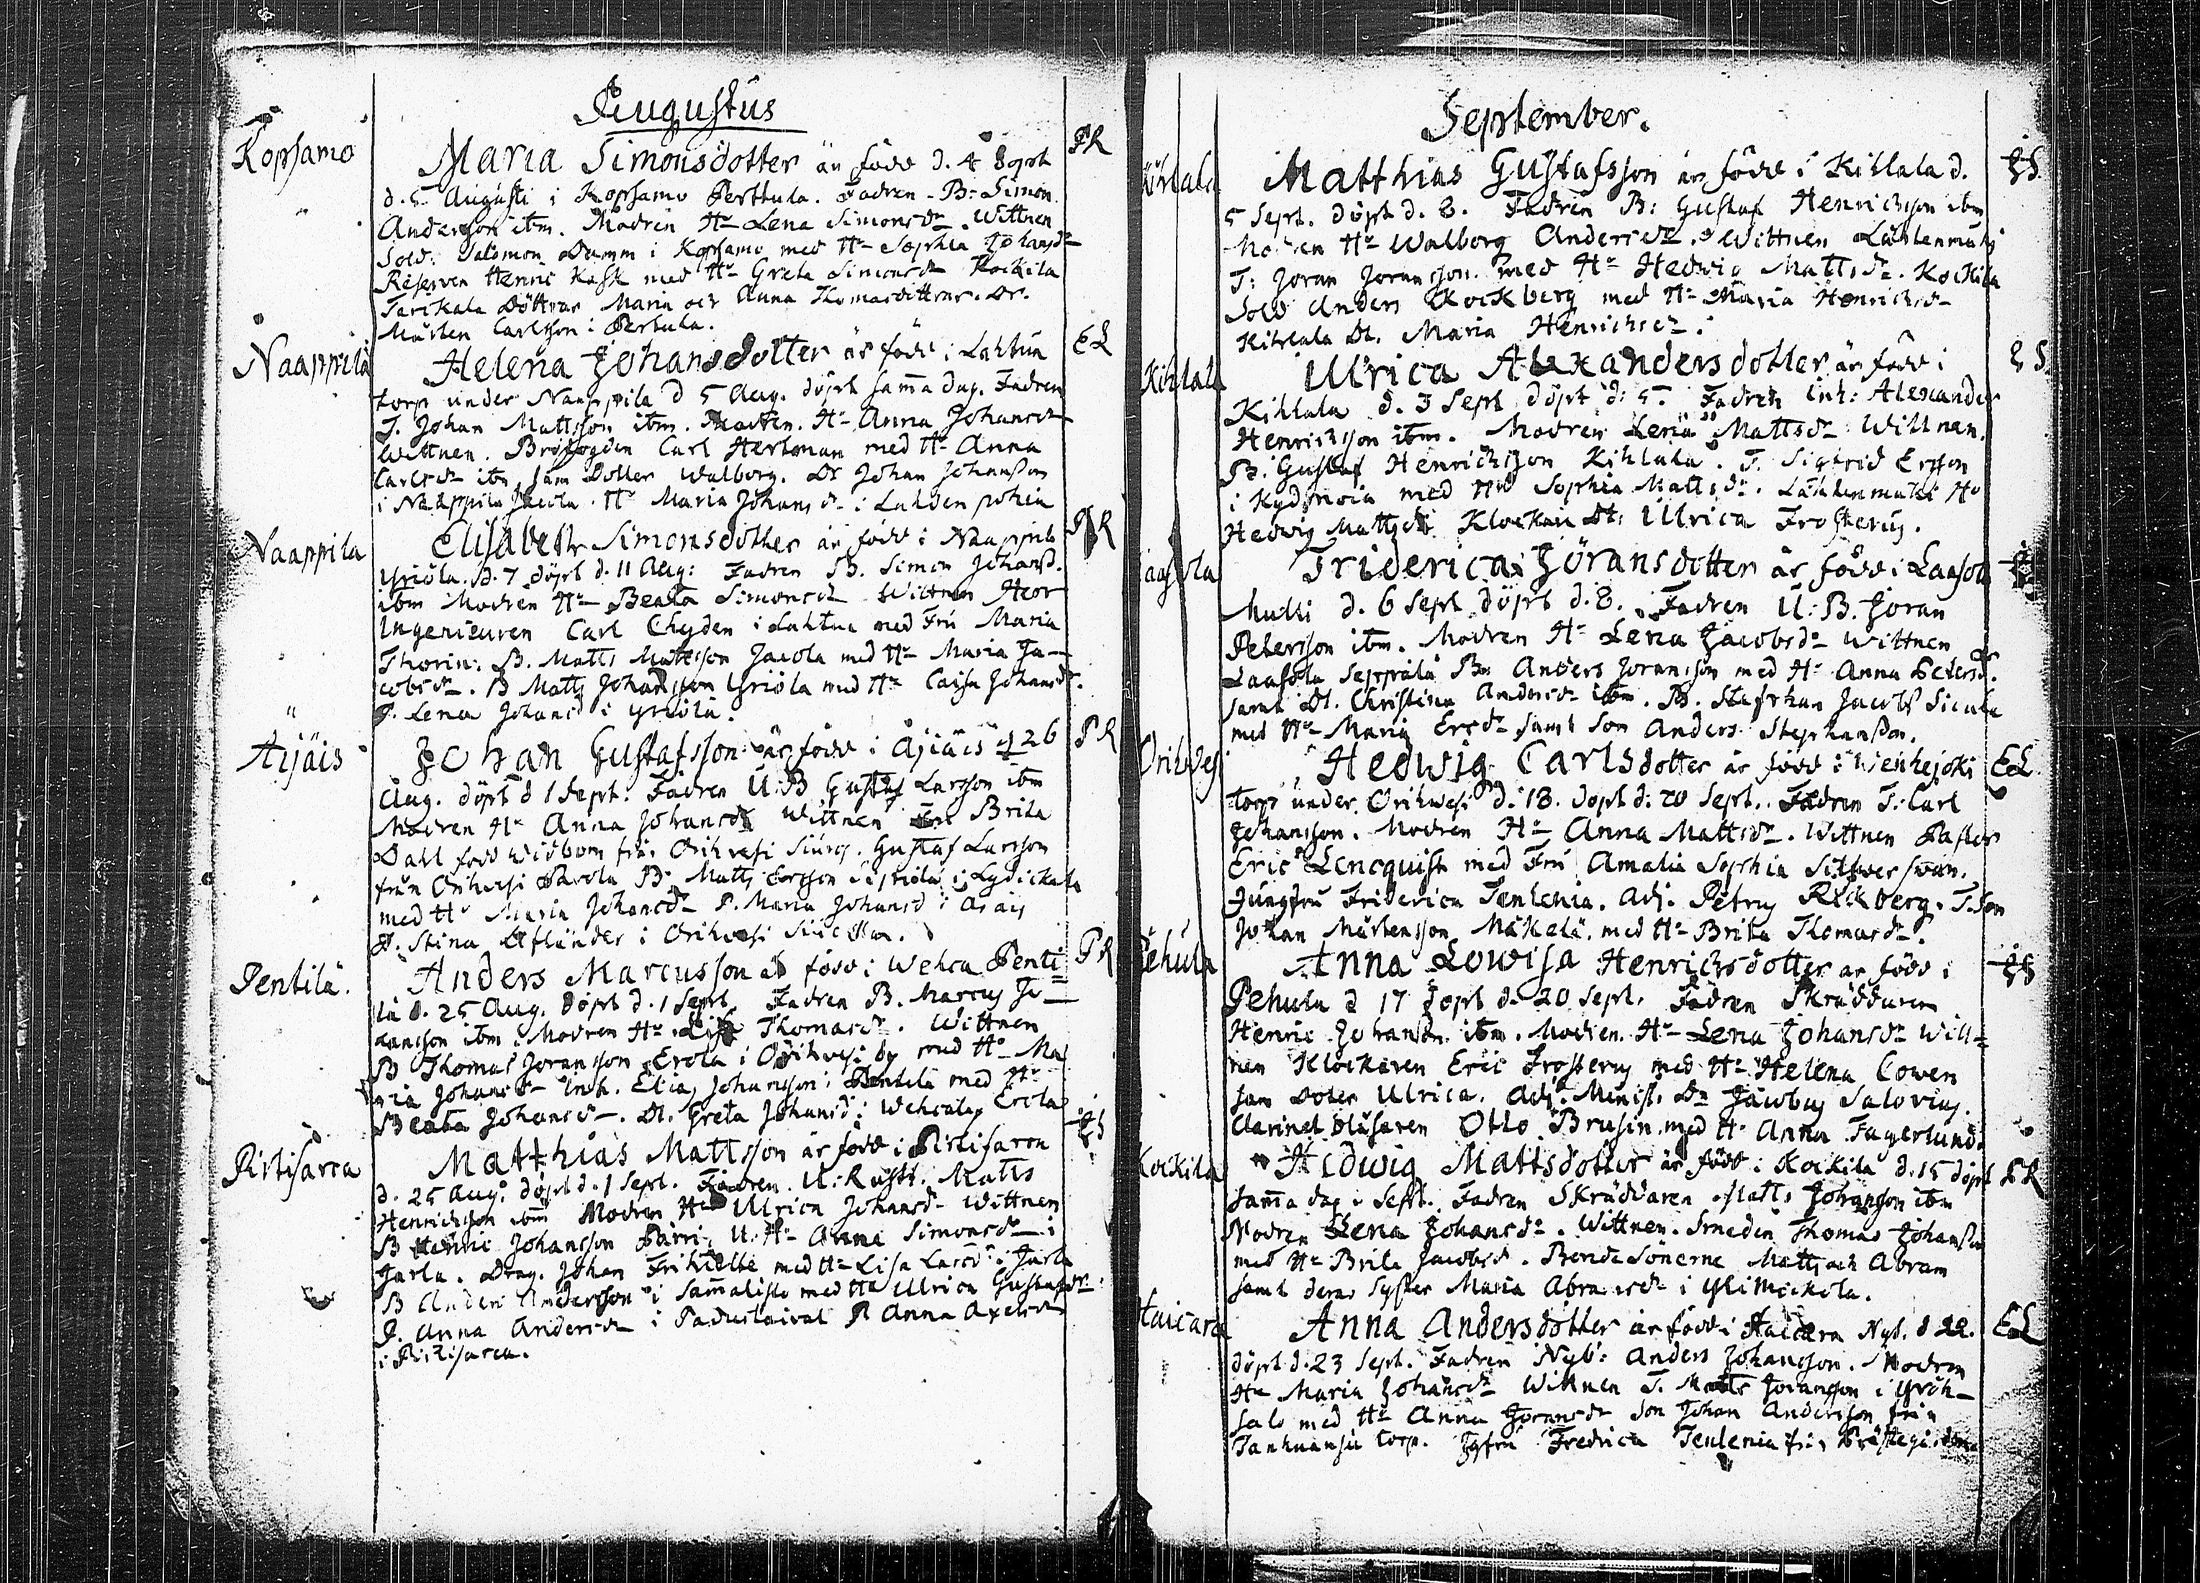 Augustus
Kopsamo
Maria Simonsdotter är född d. 4 döpt
PR
d. 5 Augusti i Kopsamo Perttula. Fadren B: Simon
Andersson ibm. Modren Hu Lena Simonsdr. Wittnen
Sold: Salomon Damm i Kopsamo med Hu Sophia Johansdr
Reserven Henric Kask med Hu Greta Simonsdr Kockila
Döttrar Maria och Anna Thomasdöttrar. Dr.
Mårten Carlsson i Pertula.
Naappila
Helena Johansdotter är född i Lahtua
EL
torp under Naappila d 5 Aug. döpt samma dag. Fadren
T. Johan Mattsson ibm. Modren. Hu Anna Johansdr
Wittnen. Carl Hertman med Hu Anna
Carlsdr ibm sam Dotter Walborg. Dr Johan Johansson
i Naappila Jacola. Hu Maria Johansdr i Lahden pohia
Naappila
Elisabeth Simonsdotter är född i Naappila
PR
Yriölä. d. 7 döpt d. 11 Aug: Fadren B. Simon Johanss.
ibm Modren Hu Beata Simonsdr Wittnen Herr
Ingenieuren Carl Chyden i Lahtua med Fru Maria
Thorin: B. Matts Mattsson Jacola med Hu Maria Ja-
cobsdr. B Matts Johansson Yriölä med Hu Caisa Johansdr.
P. Lena Johansd i Yriölä.
Äijäis
Johan Gustafsson är född i Äjiäis d 26
PR
Aug. döpt d 1 Sept. Fadren U. B Gustaf Larsson ibm
Modren Hu Anna Johansdr Wittnen Fru Brita
Dahl född Widbom från Orihvesi Gustaf Larsson
från Orihvesi Pavola B. Matts Ersson i Lydickala
med Hu Maria Johansdr P. Maria Johansd i
P. Stina Uflånder i Orihvesi
Pentilä.
Anders Marcusson är född i Wehca Penti
PR
lä d. 25 Aug. döpt d. 1 Sept. Fadren B. Marcus Jo-
hansson ibm. Modren Hu Lisa Thomasdr. Wittnen
B Thomas Joransson Erola i Orihvesi by med Hu Ma
ria Johansdr Inh. Elias Johansson i Pentilä med Hu
Beata Johansdr. Dt. Greta Johansd i Erola
Pirtisarca
Matthias Mattsson är född i Pirtisarca
d. 25 Aug. döpt d. 1 Sept. Fadren. U: Rustt. Matts
Henricsson ibm Modren Hu Ulrica Johansdr Wittnen
B Henric Johansson U. Hu Anna Simonsdr i
Jarla. Drag. Johan med Hu Lisa Larsdr i Jarla
B Anders Andersson i Sammalisto med Hu Ulrica Gustafsdr
P. Anna Andersdr i P Anna Axelsdr
i Pirtisarca.
September.
Kihlala
Matthias Gustafsson är född i Kihlala d.
5 Sept. döpt d. 8. Fadren B: Gustaf Henricsson ibm
Modren Hu Walborg Andersdr. Wittnen
T: Joran Joransson med Hu Hedwig Mattsdr. Kockila
Sold Anders Kockberg med Hu Maria Henricsdr
Kihlala Dt. Maria Henricsdr.
Kihlala
Ulrica Alexandersdotter är född i
Kihlala d. 3 Sept döpt d: 5. Fadren Inh: Alexander
Henricsson ibm. Modren Lena Mattsdr Wittnen.
B. Gustaf Henricsson Kihlala. T. Sigfrid Ersson
i med Hu Sophia Mattsdr. Hu
Hedwig Mattsdr Klockars Dt: Ulrica Frosterus.
Laasola
Friderica Jöransdotter är född i Laasola
Mulli d. 6 Sept döpt d. 8. Fadren U: B. Joran
Petersson ibm. Modren Hu Lena Jacobsdr Wittnen
Laasola Seppälä Bn Anders Joransson med Hu Anna Petersdr.
samt Dt. Christina Andersdr ibm. B. Stephan Jacobss
med Hu Maria Ersdr samt Son Anders Stephansson.
Orihvesi
Hedwig Carlsdotter är född i Wenhejoki
EL
torp under Orihwesi d. 18. döpt d: 20 Sept. Fadren T: Carl
Johansson. Modren Hu Anna Mattsdr. Wittnen Pastor
Eric Lencquist med Fru Amalia Sophia Silfwerswan.
Jungfru Friderica Tenlenia. Adj. Petrus Rikberg. T. Son
Johan Mårtensson Mäkelä. med Hu Brita Thomasdr.
Pehula
Anna Lowisa Henricsdotter är född i
Pehula d 17 döpt d. 20 Sept. Fadren Skräddaren
Henric Johanson ibm. Modren. Hu Lena Johansdr Witt-
nen Klockaren Eric Frosterus med Hu Helena Cowen
sam Doter Ulrica. Adj. Minist. Dn Jacobus Salovius.
Clarinet blåsaren Otto Brusin med Hu Anna Fagerlund.
Kockila
Hedwig Mattsdotter är född i Kockila d. 15 döpt
PR
samma dag i Sept. Fadren Skräddaren Matts Johansson ibm
Modren Lena Johansdr. Wittnen. Smeden Thomas Johansson
med Hu Brita Jacobsd. Bonde Sönerne Matts och Abram
samt deras Syster Maria Abramsdr i Ylimickola.
Haicara
Anna Andersdotter är född i Haicara Nyb. d 22.
EL
döpt d. 23 Sept. Fadren Nyb: Anders Johansson. Modren
Hu Maria Johansdr Wittnen T. Matts Joransson i
salo med Hu Anna Joransdr Son Johan Andersson från
torp. Jgfru Fredrica Tenlenia från